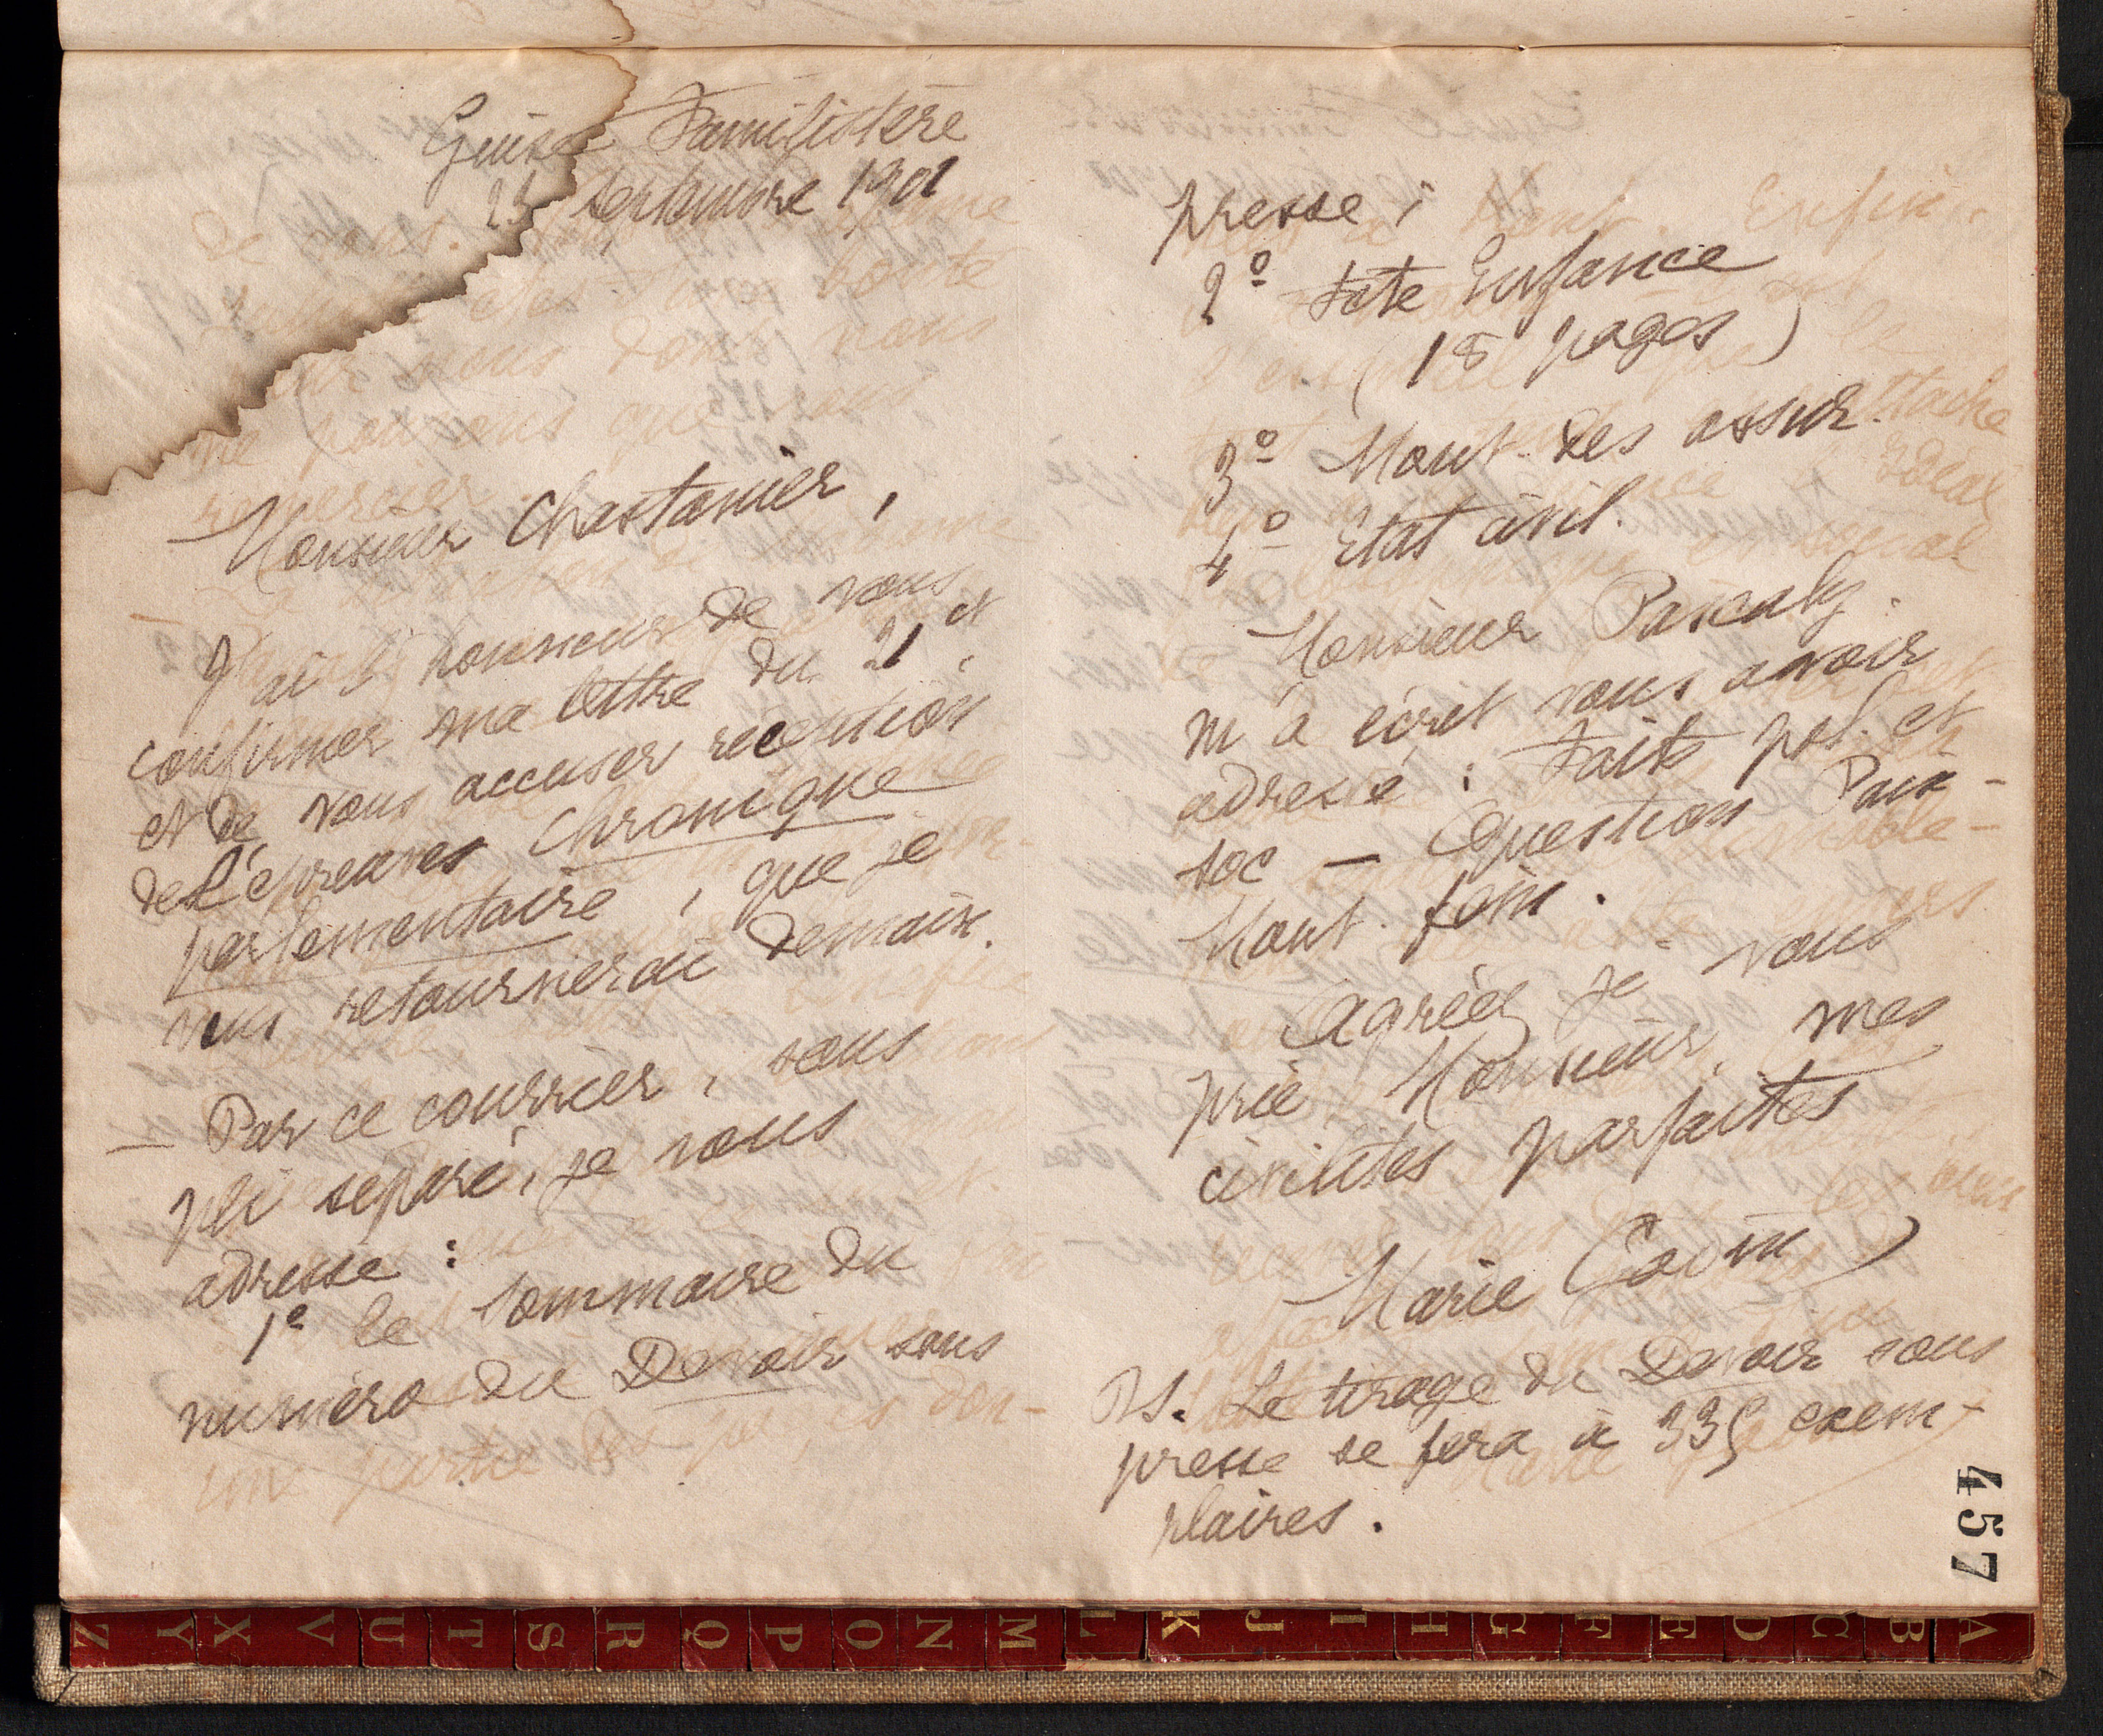 Guise Familistère
25 septembre 1901
Monsieur Chastanier,
J'ai l'honneur de vous
confirmer ma lettre du 21 ct
et de vous accuser réception
de l'épreuves Chronique
parlementaire, que je
vous retournerai demain.
— Par ce courrier, sous
pli séparé, je vous
adresse :
1º le sommaire du
numéro du Devoir sous
presse ;
2º Fête Enfance
(18 pages)
3º Mouv. des assur.
4º Etat civil.
Monsieur Pascaly
m'a écrit vous avoir
adressé : Faits pol. et
soc — Question Paix —
Mouv. fém.
Agréez je vous
prie, Monsieur, mes
civilités parfaites
Marie Godin
PS. Le tirage du Devoir sous
presse se fera à 335 exem-
plaires.
457
Z Y X V U T S R Q P O N M L K J I H G F E D C B A